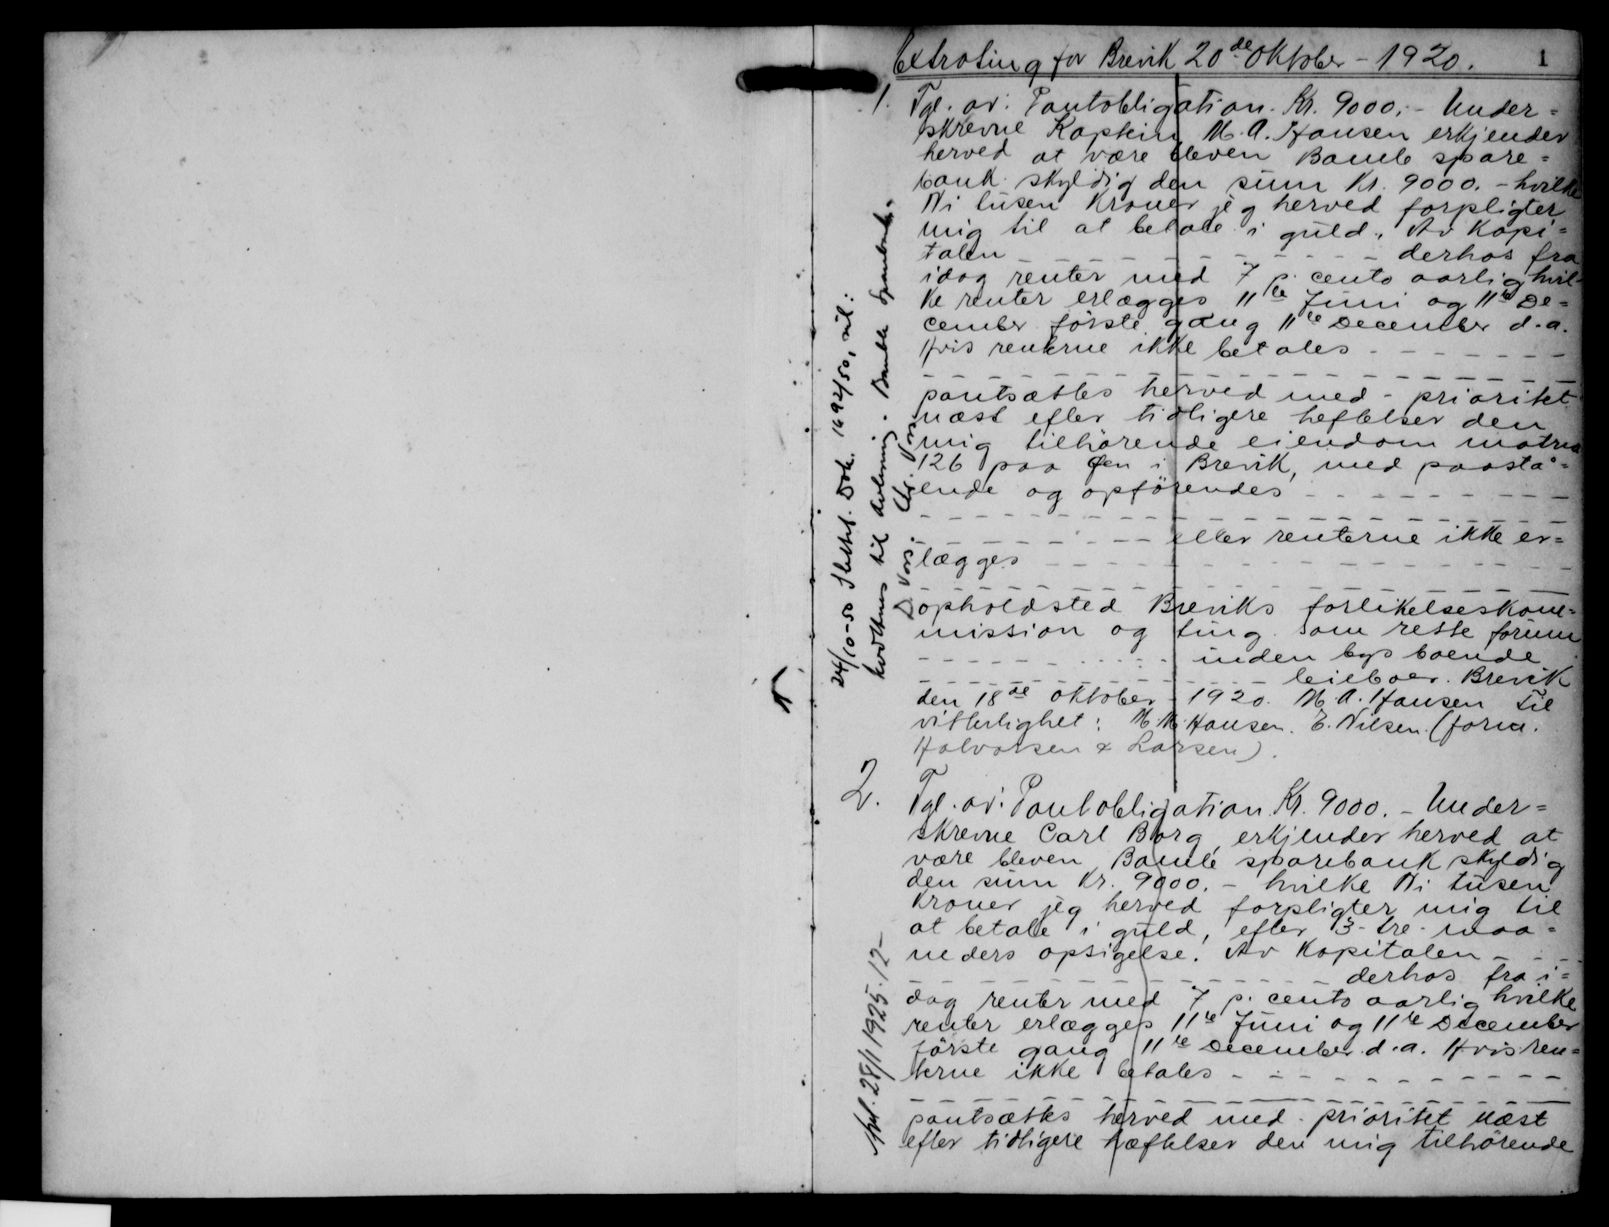 Extrating for Brevik 20de Oktober - 1920. 1
1. Tgl. av: Pantobligation. Kr. 9000.- Under=
skrevne Kaptein M. A. Hansen erkjender
herved at være bleven Bamle spare=
bank skyldig den sum Kr. 9000.- hvilke
Ni tusen Kroner jeg herved forpligter
mig til at betale i guld. Av Kapi=
talen - - - - - - - - - - derhos fra
idag renter med 7 p. cento aarlig hvil-
ke renter erlægges 11te Juni og 11te De=
cember første gang 11te December d.a.
Hvis renterne ikke betales - - - - - - -
- - - - - - - - - - - - - - - - - - -
pantsættes herved med - prioritet
næst efter tidligere heftelser den
mig tilhørende eiendom matr.no
126 paa Øen i Brevik, med paastå=
ende og opførendes - - - - - - - - -
- - - - - - - - - - - - - - - - - - -
- - - - - - - - - eller renterne ikke er=
lægges - - - - - - - - - - - - - - -
- - - - - - - - - - - - - - - - - - -
opholdsted Breviks forlikelseskom=
mission og ting som rette forum
- - - - - - - - - - inden bys boende
- - - - - - - - - - - - - leiboer. Brevik
den 18de Oktober 1920. M. A. Hansen Til
vitterlighet: M. M. Hansen. E. Nilsen. (forn.
Halvorsen & Larsen).
24/10-50 Slettet. Dok. 1692/50, nil:
kvitteres til avlesning. Bamble Sparebank.
D. Vors: Chr. Vors:
2. Tgl. av: Pantobligation Kr. 9000.- Under=
skrevne Carl Borg, erkjender herved at
være bleven Bamle sparebank skyldig
den sum Kr. 9000.- hvilke Ni tusen
Kroner jeg herved forpligter mig til
at betale i guld, efter 3- tre- maa=
neders opsigelse. Av Kapitalen - - - -
- - - - - - - - - - - - - derhos fra i=
dag renter med 7 p. cento aarlig hvilke
renter erlægges 11te Juni og 11te December
første gang 11te December d.a. Hvis ren=
terne ikke betales - - - - - - - - - - -
- - - - - - - - - - - - - - - - - - -
pantsættes herved med - prioritet næst
efter tidligere hæftelser den mig tilhørende
Avl. 28/1 1925. 12-